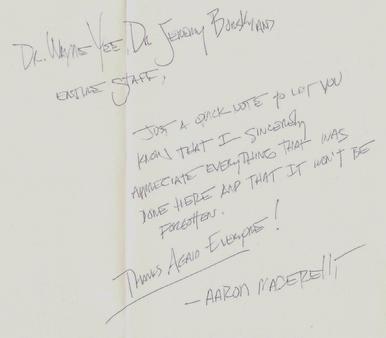 Dr. Wayne Yee, Dr. Jeremy Borsky and
entire staff,
Just a quick note to let you
know that I sincerely
appreciate everything that was
done here and that it won't be
forgotten.
Thanks Again Everyone!
- Aaron